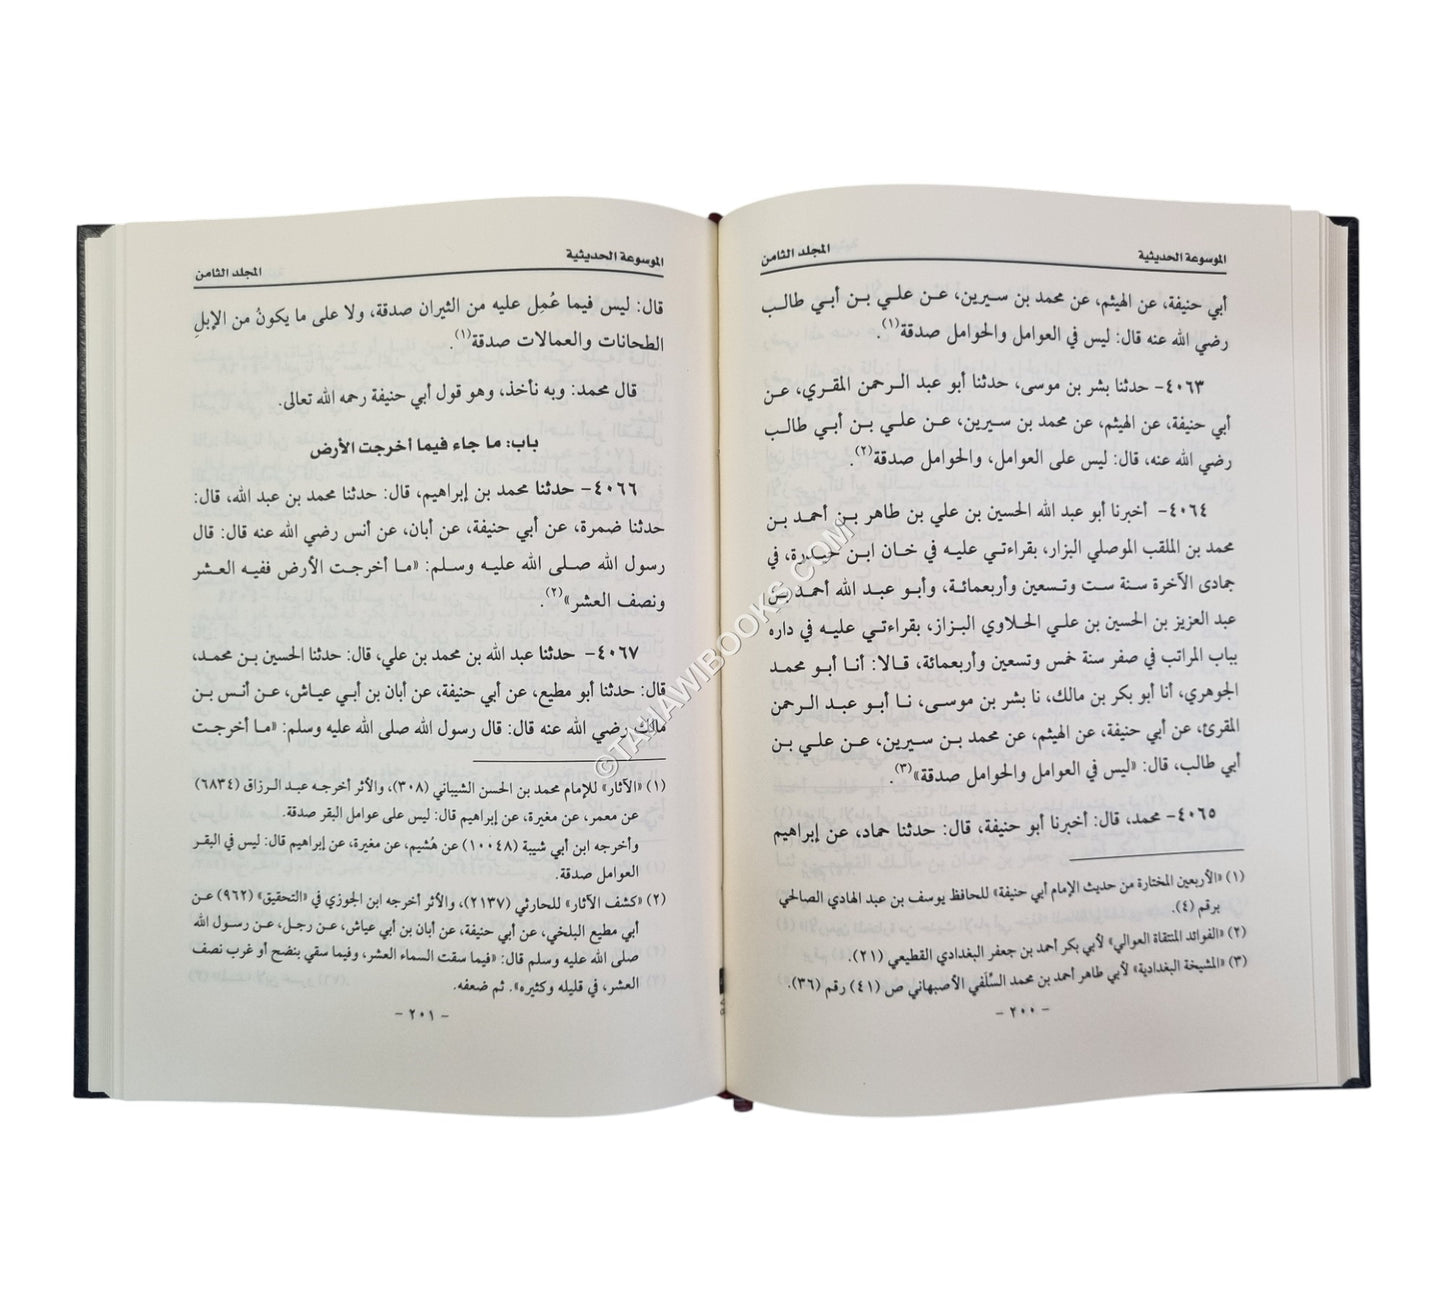 الموسوعة الحديثية
المجلد الثامن
أبي حنيفة، عن الهيثم، عن محمد بن سيرين، عن علي بن أبي طالب
رضي الله عنه قال: ليس في العوامل والحوامل صدقة(١).
٤٠٦٣- حدثنا بشر بن موسى، حدثنا أبو عبد الرحمن المقري، عن
أبي حنيفة، عن الهيثم، عن محمد بن سيرين، عن علي بن أبي طالب
رضي الله عنه، قال: ليس على العوامل، والحوامل صدقة(٢).
٤٠٦٤- أخبرنا أبو عبد الله الحسين بن علي بن طاهر بن أحمد بن
محمد بن الملقب الموصلي البزار، بقراءتي عليه في خان ابن حيدرة، في
جمادى الآخرة سنة ست وتسعين وأربعمائة، وأبو عبد الله أحمد بن
عبد العزيز بن الحسين بن علي الحلاوي البزاز، بقراءتي عليه في داره
بباب المراتب في صفر سنة خمس وتسعين وأربعمائة، قالا: أنا أبو محمد
الجوهري، أنا أبو بكر بن مالك، نا بشر بن موسى، نا أبو عبد الرحمن
المقرئ، عن أبي حنيفة، عن الهيثم، عن محمد بن سيرين، عن علي بن
أبي طالب، قال: «ليس في العوامل والحوامل صدقة»(٣).
٤٠٦٥- محمد، قال: أخبرنا أبو حنيفة، قال: حدثنا حماد، عن إبراهيم
(١) «الأربعين المختارة من حديث الإمام أبي حنيفة» للحافظ يوسف بن عبد الهادي الصالحي
برقم (٤).
(٢) «الفوائد المنتقاة العوالي» لأبي بكر أحمد بن جعفر البغدادي القطيعي (٢١).
(٣) «المشيخة البغدادية» لأبي طاهر أحمد بن محمد السِّلفي الأصبهاني ص (٤١) رقم (٣٦).
- ٢٠٠ -
الموسوعة الحديثية
المجلد الثامن
قال: ليس فيما عُمِل عليه من الثيران صدقة، ولا على ما يكونُ من الإبلِ
الطحانات والعمالات صدقة(١).
قال محمد: وبه نأخذ، وهو قول أبي حنيفة رحمه الله تعالى.
باب: ما جاء فيما أخرجت الأرض
٤٠٦٦- حدثنا محمد بن إبراهيم، قال: حدثنا محمد بن عبد الله، قال:
حدثنا ضمرة، عن أبي حنيفة، عن أبان، عن أنس رضي الله عنه قال: قال
رسول الله صلى الله عليه وسلم: «ما أخرجت الأرض ففيه العشر
ونصف العشر»(٢).
٤٠٦٧- حدثنا عبد الله بن محمد بن علي، قال: حدثنا الحسين بن محمد،
قال: حدثنا أبو مطيع، عن أبي حنيفة، عن أبان بن أبي عياش، عن أنس بن
مالك رضي الله عنه قال: قال رسول الله صلى الله عليه وسلم: «ما أخرجت
(١) «الآثار» للإمام محمد بن الحسن الشيباني (٣٠٨)، والأثر أخرجه عبد الرزاق (٦٨٣٤)
عن معمر، عن مغيرة، عن إبراهيم قال: ليس على عوامل البقر صدقة.
وأخرجه ابن أبي شيبة (١٠٠٤٨) عن هُشيم، عن مغيرة، عن إبراهيم قال: ليس في البقر
العوامل صدقة.
(٢) «كشف الآثار» للحارثي (٢١٣٧)، والأثر أخرجه ابن الجوزي في «التحقيق» (٩٦٢) عن
أبي مطيع البلخي، عن أبي حنيفة، عن أبان بن أبي عياش، عن رجل، عن رسول الله
صلى الله عليه وسلم قال: «فيما سقت السماء العشر، وفيما سقي بنضح أو غرب نصف
العشر، في قليله وكثيره». ثم ضعفه.
- ٢٠١ -
©TAHAWIBOOKS.COM